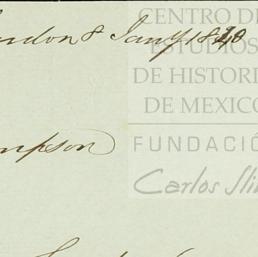 London 8 Jany 1840
CENTRO DE
ESTUDIOS
DE HISTORIA
DE MEXICO
mpson
FUNDACIÓ
Carlos Sli